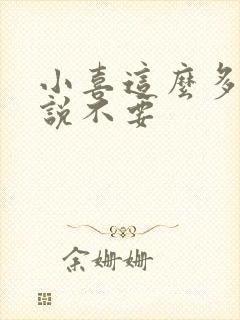 小喜這麼多
說不要
余姗姗